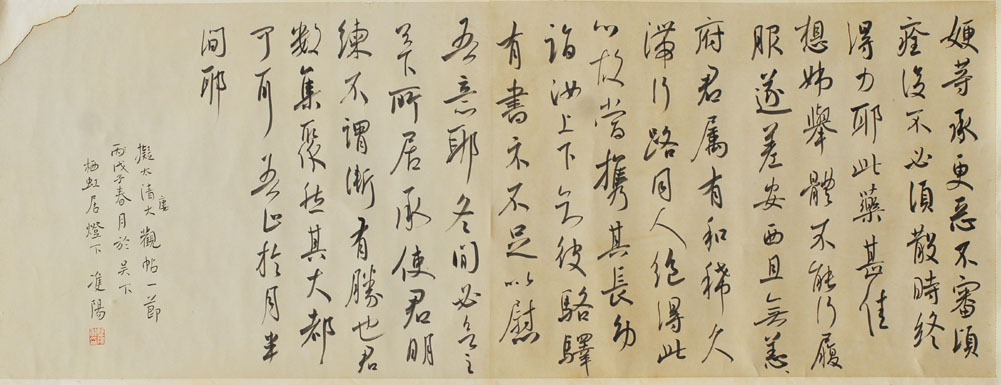 嫂等承更惡不審頃
痊復不必須散時終
得力耶此藥甚佳
想姊舉體不能行履
服遂差安西且無恙
府君屬有和緩久
滯行路同人絕得此
以故當攜其長幼
詣汝上下無彼駱驛
有書不不足以慰
吾意耶冬間必
其下所居承使君明
練不謂漸有勝也君
數集聚從其大都
可耳 吾正於月半
間耶
擬大清大觀帖一節
丙戌子春月於吳下
栖虹居燈下 淮陽